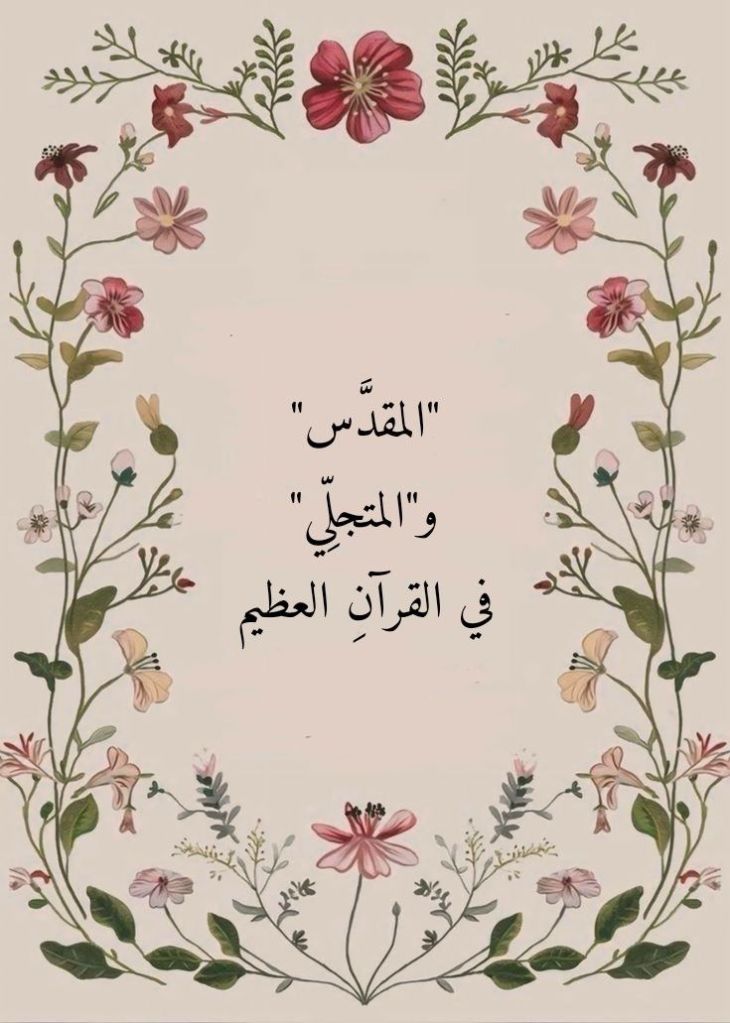 "المقدَّس"
و"المتجلِّي"
في القرآنِ العظيم